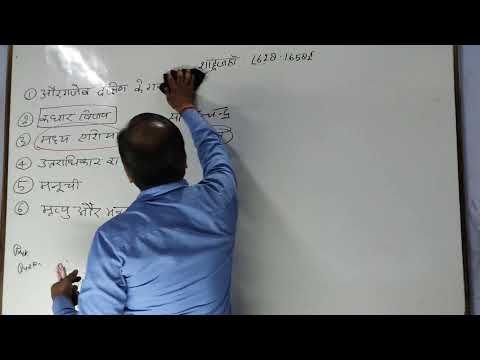 शाहजहाँ (628-1658ई
① औरंगजेब दक्षिण के
② कंधार विजय
③ मध्य एशिया
④ उत्तराधिकार
⑤ मनूची
⑥ मृत्यु और